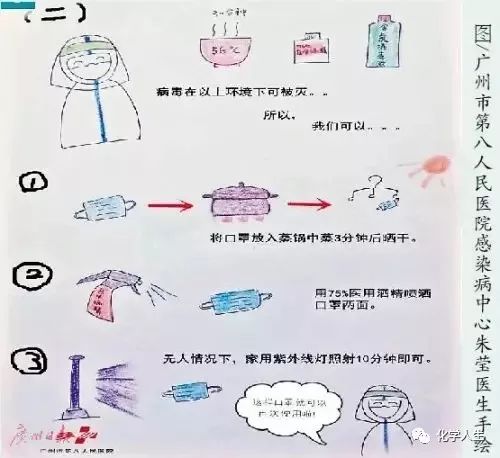 (二)
30分钟
56℃
含氯消毒液
病毒在以上环境下可被灭。。
所以,
我们可以....
①
将口罩放入蒸锅中蒸3分钟后晒干。
②
用75%医用酒精喷洒
口罩两面。
③
无人情况下，家用紫外线灯照射10分钟即可。
这样口罩就可以
再次使用啦!
广州日报
广州市第八人民医院
化学人生
图/广州市第八人民医院感染病中心朱莹医生手绘